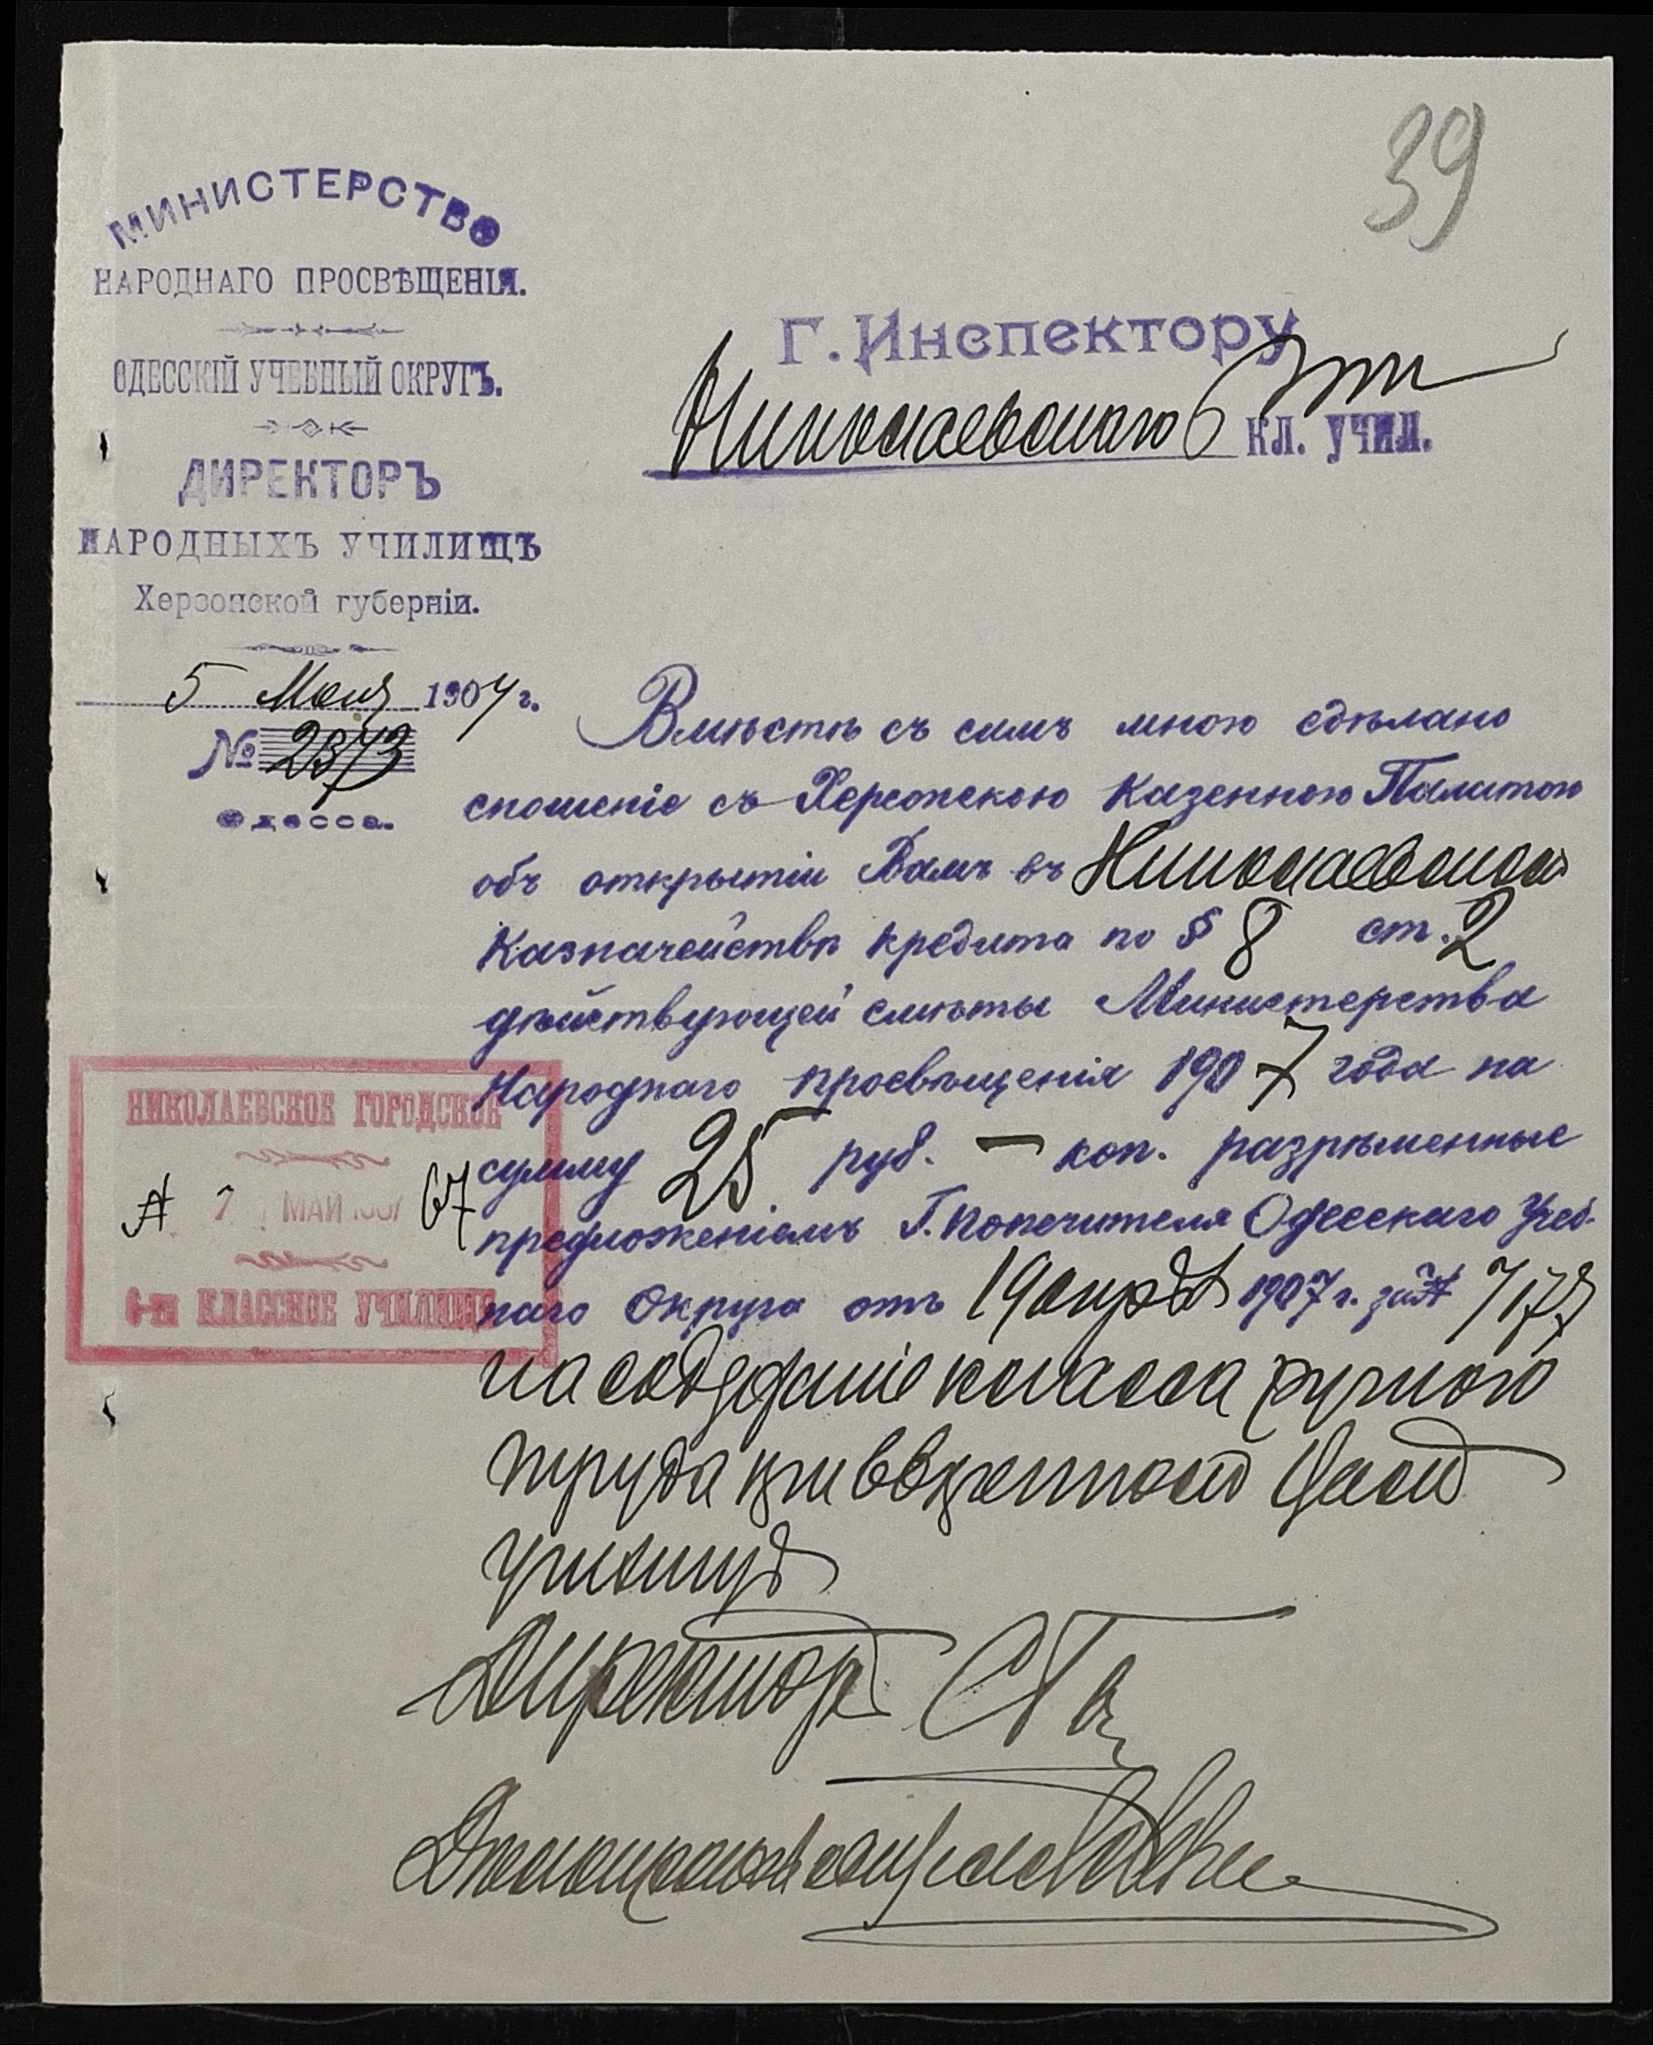 39
МИНИСТЕРСТВО
НАРОДНАГО ПРОСВѢЩЕНІЯ.
ОДЕССКІЙ УЧЕБНЫЙ ОКРУГЪ.
ДИРЕКТОРЪ
НАРОДНЫХЪ УЧИЛИЩЪ
Херсонской губерніи.
5 Мая 1907 г.
№ 2373
Одесса.
Г. Инспектору
Николаевскаго 6ти
кл. учил.
Вмѣстѣ съ симъ мною сдѣлано
сношеніе съ Херсонскою Казенною Палатою
объ открытіи Вамъ въ Николаевском
Казначействѣ кредита по § 8 ст. 2
дѣйствующей смѣты Министерства
Народнаго просвѣщенія 1907 года на
сумму 25 руб. — коп. разрѣшенные
предложеніемъ Г. Попечителя Одесскаго Учеб-
наго Округа отъ 19 апрѣля 1907 г. за №
на содержаніе класса ручного
труда при ввѣренномъ Вамъ
училищѣ
Директоръ
Дѣлопроизводитель
НИКОЛАЕВСКОЕ ГОРОДСКОЕ
№ 7 МАЙ 1907 67
6-ти КЛАССНОЕ УЧИЛИЩЕ